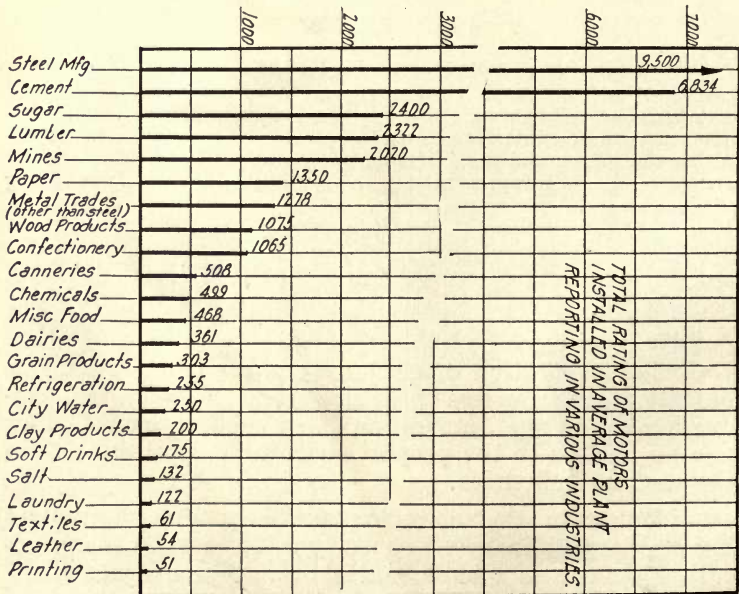 1000 2000 3000 6000 7000
Steel Mfg 9,500
Cement 6,834
Sugar 2400
Lumber 2322
Mines 2020
Paper 1350
Metal Trades 1278
(other than steel)
Wood Products 1075
Confectionery 1065
Canneries 508
Chemicals 499
Misc Food 468
Dairies 361
Grain Products 303
Refrigeration 255
City Water 250
Clay Products 200
Soft Drinks 175
Salt 132
Laundry 122
Textiles 61
Leather 54
Printing 51
TOTAL RATING OF MOTORS
INSTALLED IN AVERAGE PLANT
REPORTING IN VARIOUS INDUSTRIES